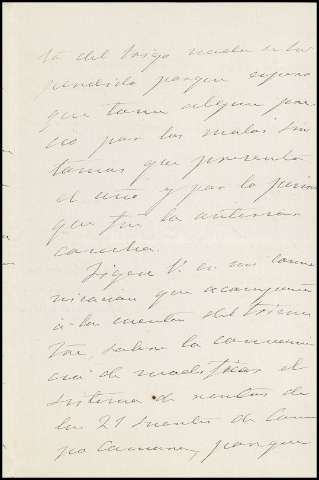 tá del trigo nada se ha
vendido porque espero
que tome algun pre-
cio por los malos sin
tomas que presenta
el año y por lo
que fue la anterior
cosecha.
Digen V. en mi comu
nicacion que acompaña
á las cuentas del trimes
tre, sobre la convenien
cia de modificar el
sistema de rentas de
las 21 suertes de Cam
po Camaney, porque